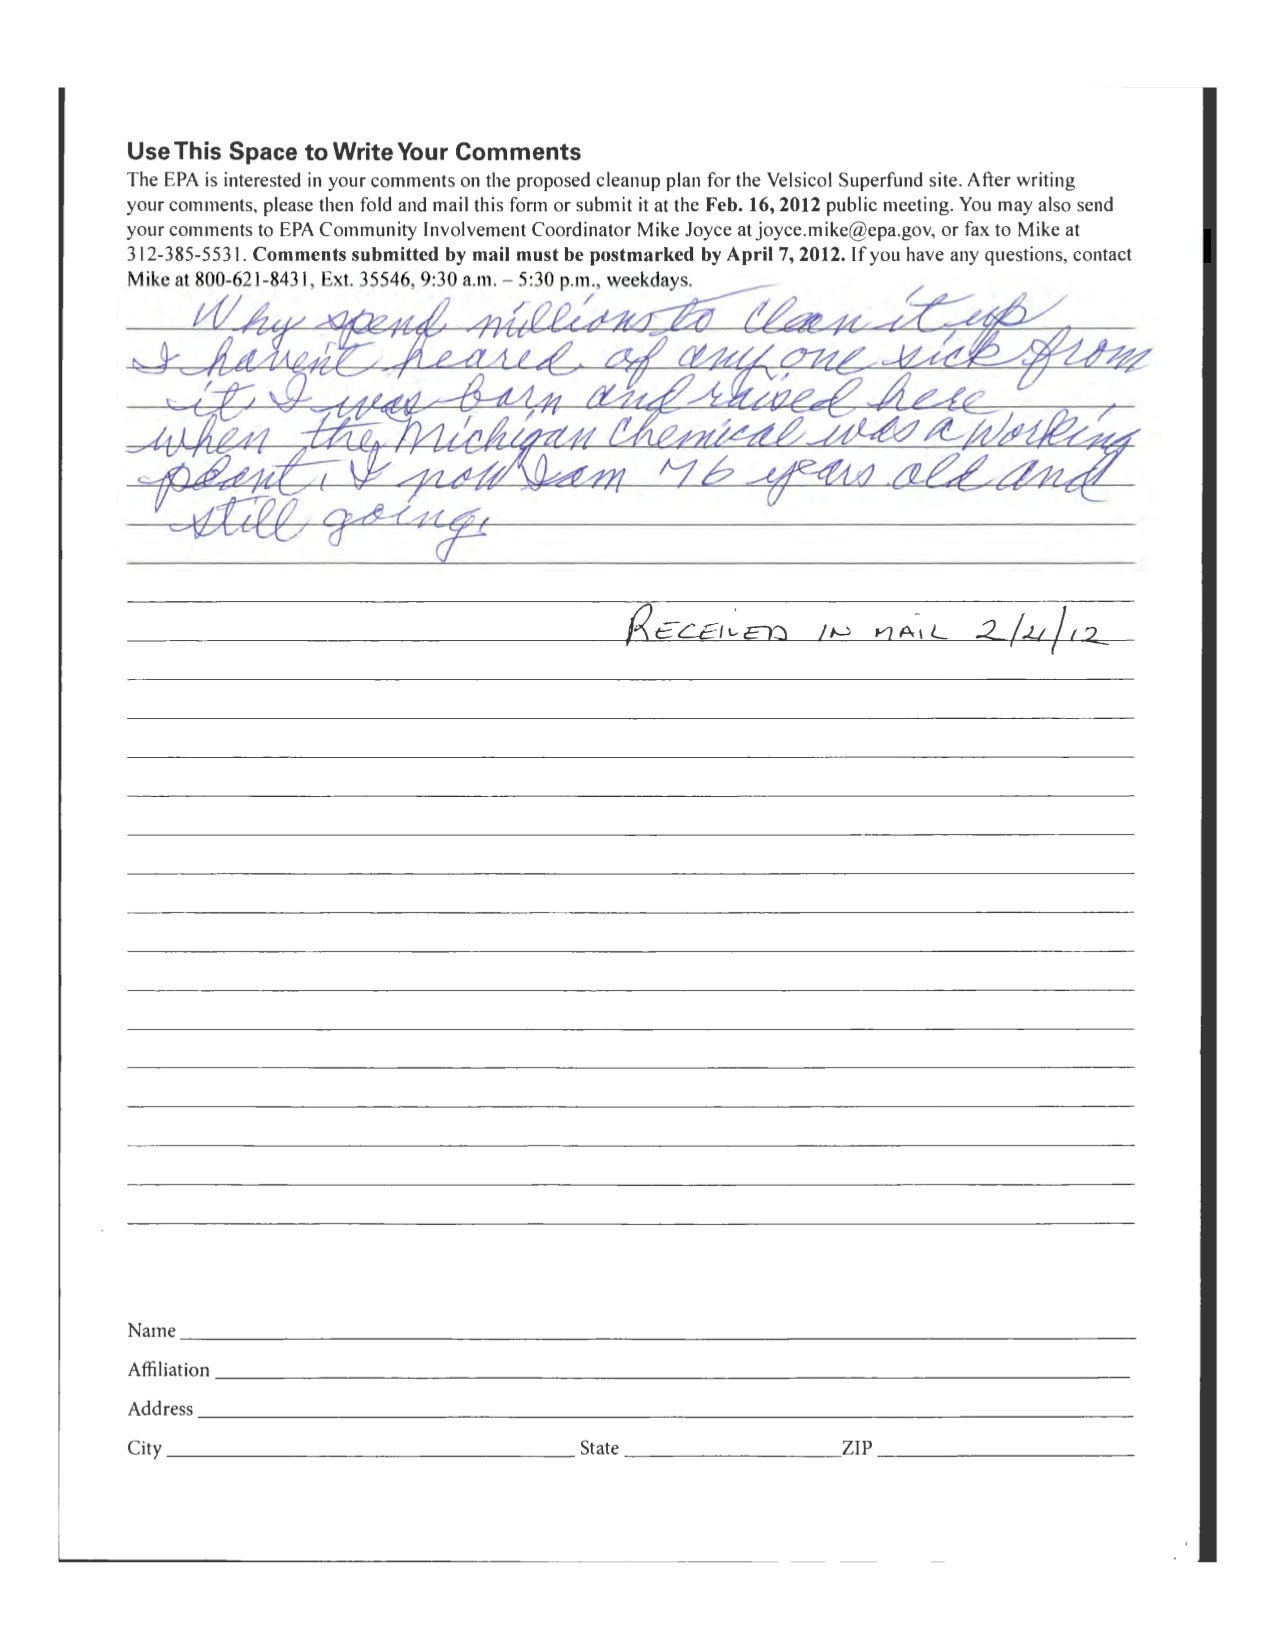 Use This Space to Write Your Comments
The EPA is interested in your comments on the proposed cleanup plan for the Velsicol Superfund site. After writing
your comments, please then fold and mail this form or submit it at the Feb. 16, 2012 public meeting. You may also send
your comments to EPA Community Involvement Coordinator Mike Joyce at joyce.mike@epa.gov, or fax to Mike at
312-385-5531. Comments submitted by mail must be postmarked by April 7, 2012. If you have any questions, contact
Mike at 800-621-8431, Ext. 35546, 9:30 a.m. – 5:30 p.m., weekdays.
Why spend millions to clean it up
I haven't heared of any one sick from
it. I was born and raised here
when the Michigan Chemical was a working
plant. I now I am 76 years old and
still going.
RECEIVED IN MAIL 2/21/12
Name
Affiliation
Address
City State ZIP